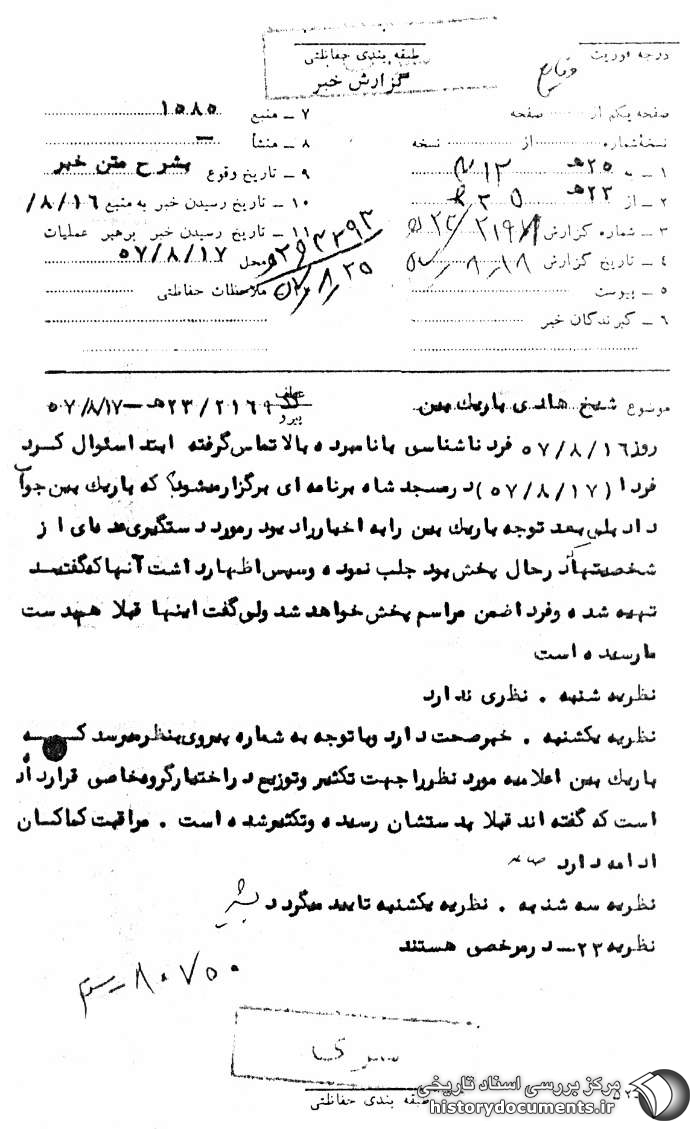 درجه فوریت
طبقه بندی حفاظتی
گزارش خبر
صفحه یکم از صفحه
نسخه شماره از نسخه
۱ ــ به ۲۵هـ ۱۲
۲ ــ از ۲۳هـ
۳ ــ شماره گزارش
۴ ــ تاریخ گزارش
۵ ــ پیوست
۶ ــ گیرندگان خبر
۷ ــ منبع ۱۵۸۵
۸ ــ منشأ ــ
۹ ــ تاریخ وقوع بشرح متن خبر
۱۰ ــ تاریخ رسیدن خبر به منبع ۱۶/۸/
۱۱ ــ تاریخ رسیدن خبر برهبر عملیات
محل ۵۷/۸/۱۷
ملاحظات حفاظتی
۲۵۳۳۹۳
موضوع شیخ هادی باریک بین
عطف
پیرو ۲۳/۲۱۶۹هـ ــ ۵۷/۸/۱۷
روز ۵۷/۸/۱۶ فرد ناشناسی با نامبرده بالا تماس گرفته ابتد اسئوال کرد
فردا (۵۷/۸/۱۷) در مسجد شاه برنامه ای برگزار میشود؟ که باریک بین جواب
داد بلی بعد توجه باریک بین را به اخبار رادیو در مورد دستگیری عده ای از
شخصیتها که در حال پخش بود جلب نموده و سپس اظهار داشت آنها که گفتید
تهیه شده و فردا ضمن مراسم پخش خواهد شد ولی گفت اینها قبلا هم بدست
ما رسیده است
نظریه شنبه . نظری ندارد
نظریه یکشنبه . خبر صحت دارد و با توجه به شماره پیروی بنظر میرسد که
باریک بین اعلامیه مورد نظر را جهت تکثیر و توزیع در اختیار گروه خاصی قرار داده
است که گفته اند قبلا بدستشان رسیده و تکثیر شده است . مراقبت کماکان
ادامه دارد
نظریه سه شنبه . نظریه یکشنبه تایید میگردد
نظریه ۲۳ــ در مرخصی هستند
۸۰۷۵۰
سری
طبقه بندی حفاظتی
مرکز بررسی اسناد تاریخی
historydocuments.ir